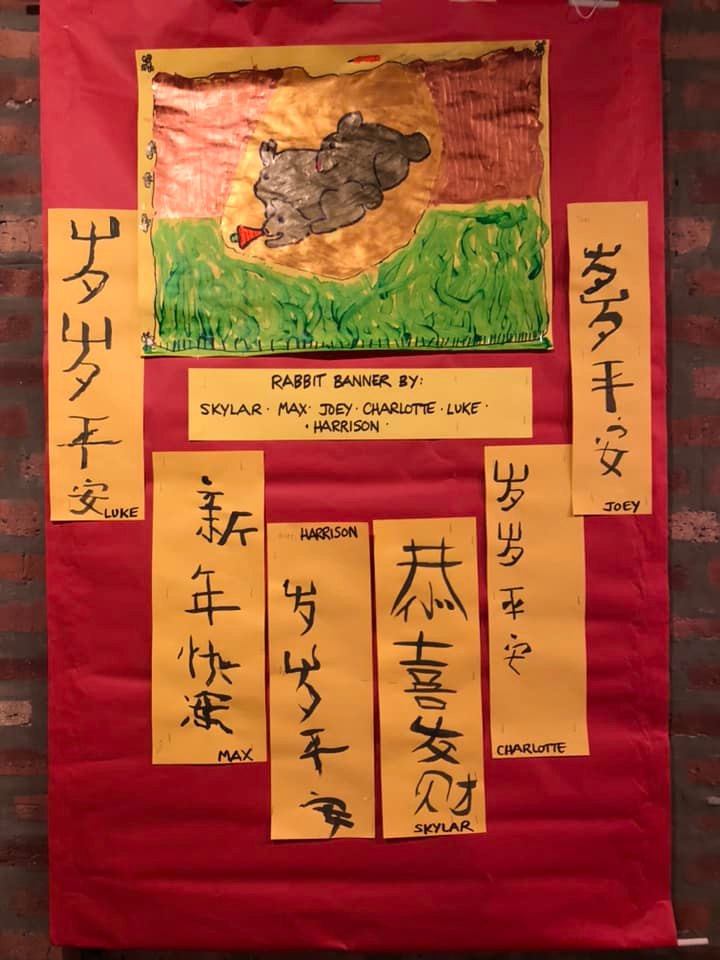 RABBIT BANNER BY:
SKYLAR · MAX · JOEY · CHARLOTTE · LUKE ·
· HARRISON ·
岁岁平安
LUKE
新年快
MAX
HARRISON
岁岁平安
恭喜发财
SKYLAR
岁岁平安
CHARLOTTE
岁岁平安
JOEY